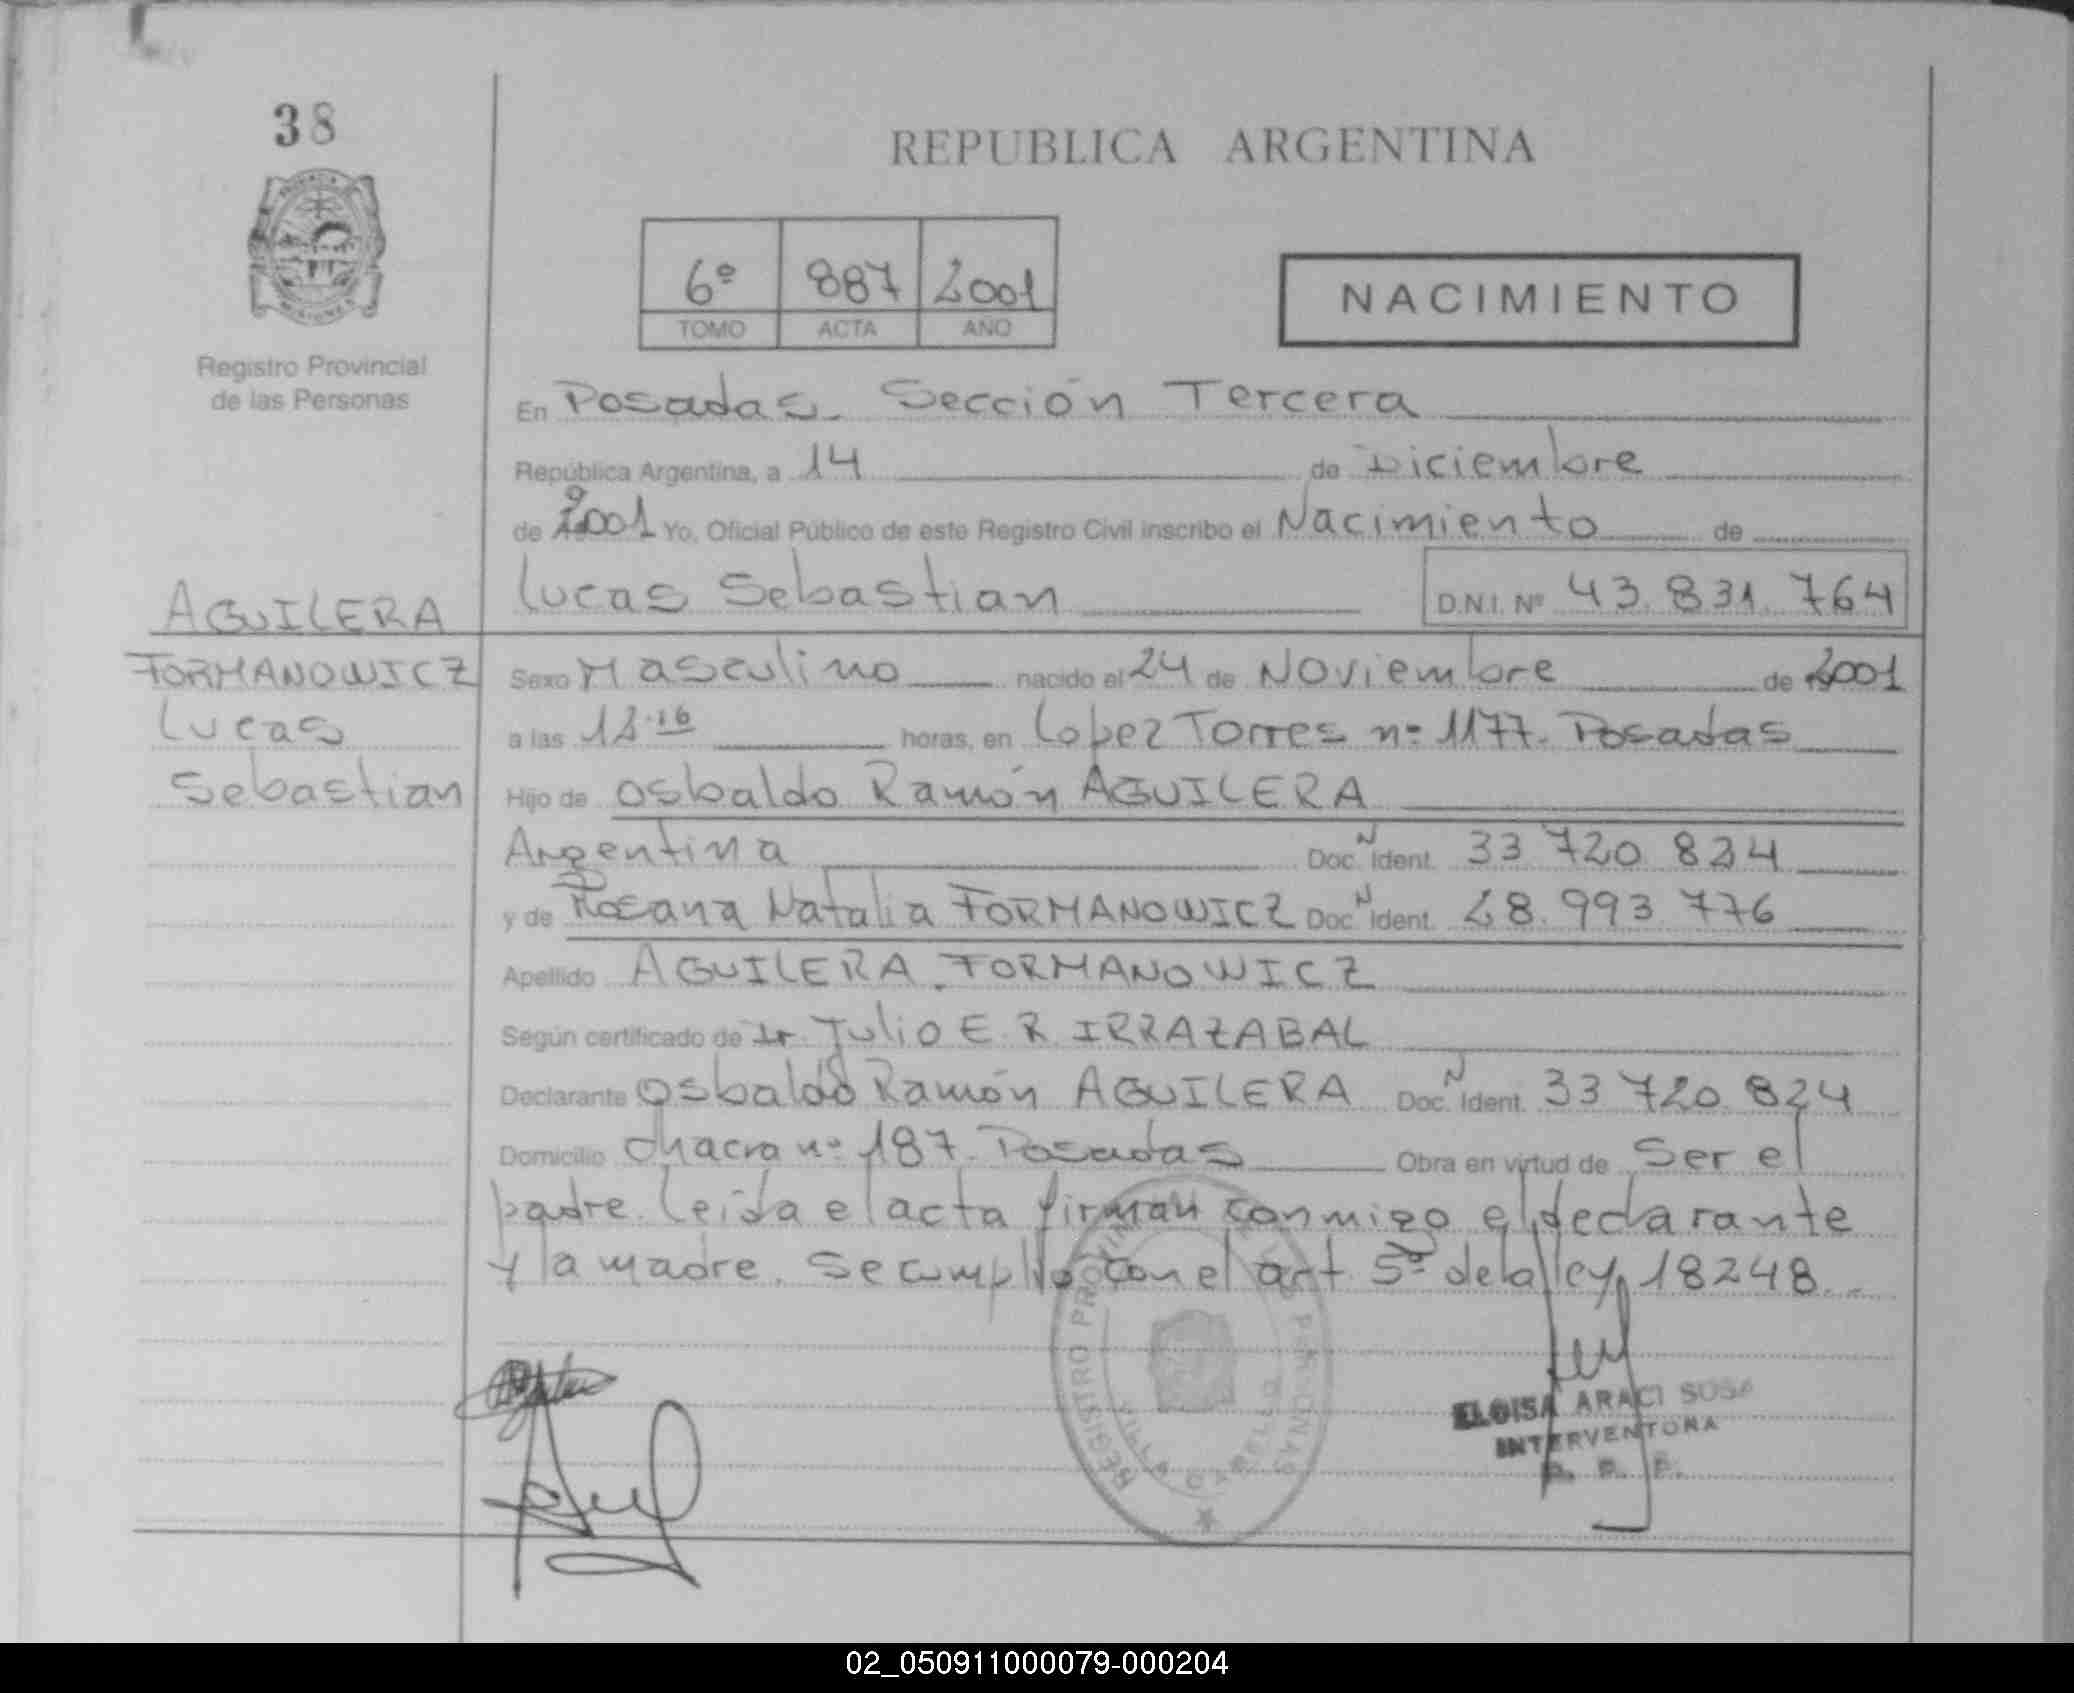 38
REPUBLICA ARGENTINA
6º 887 2001
TOMO ACTA AÑO
NACIMIENTO
Registro Provincial
de las Personas
En Posadas. Sección Tercera
República Argentina, a 14 de Diciembre
de 2001 Yo, Oficial Público de este Registro Civil inscribo el Nacimiento de
Lucas Sebastian D.N.I. Nº 43.831.764
AGUILERA
FORMANOWICZ
Lucas
Sebastian
Sexo Masculino nacido el 24 de Noviembre de 2001
a las horas, en Lopez Torres nº 1177. Posadas
Hijo de Osbaldo Ramón AGUILERA
Argentina Doc. N Ident. 33 720 824
y de Rosana Natalia FORMANOWICZ Doc. N Ident. 28.993.776
Apellido AGUILERA FORMANOWICZ
Según certificado de Dr. Julio E. R. IRRAZABAL
Declarante Osbaldo Ramón AGUILERA Doc. N Ident. 33 720 824
Domicilio chacra nº 187. Posadas Obra en virtud de Ser el
padre. Leida el acta firman conmigo el declarante
y la madre. Se cumplio con el art 5º de la ley 18248.
REGISTRO PROVINCIAL DE LAS PERSONAS
ELOISA ARACI SOSA
INTERVENTORA
R. P. P.
02_050911000079-000204